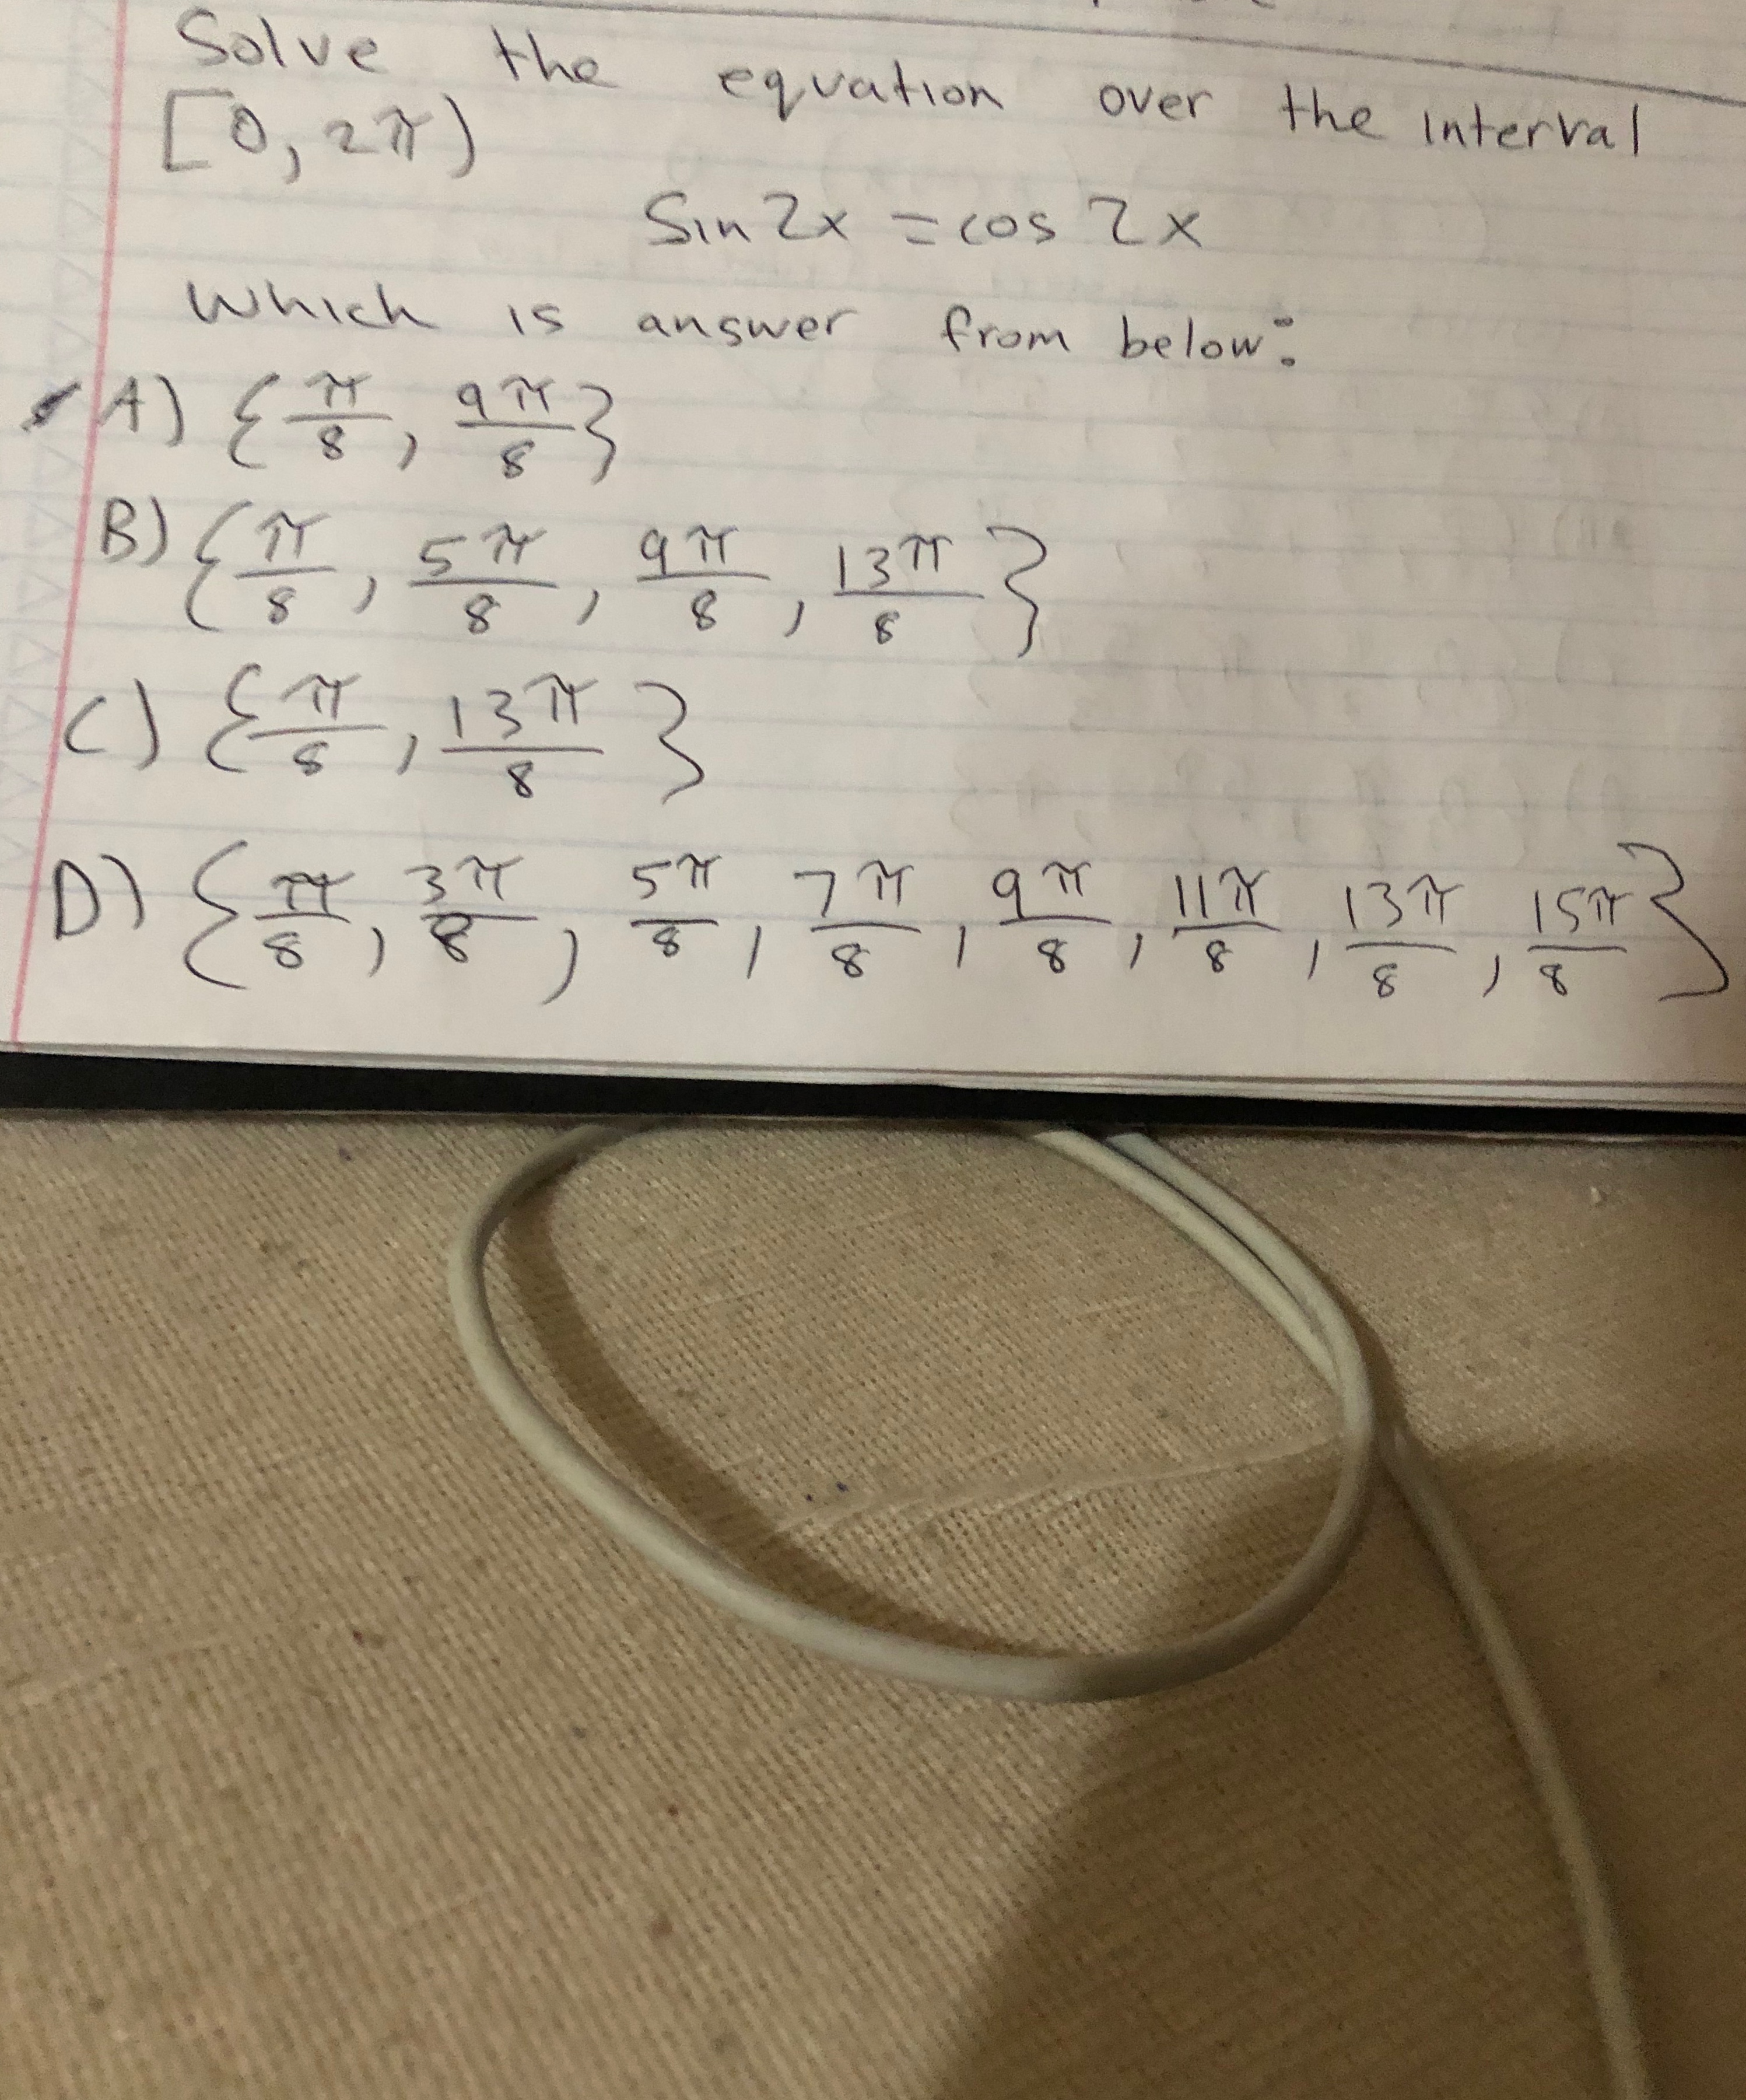 Solve the equation over the interval
[0, 2π)
Sin 2x = cos 2x
Which is answer from below:
A) {π/8, 9π/8}
B) {π/8, 5π/8, 9π/8, 13π/8}
C) {π/8, 13π/8}
D) {π/8, 3π/8, 5π/8, 7π/8, 9π/8, 11π/8, 13π/8, 15π/8}